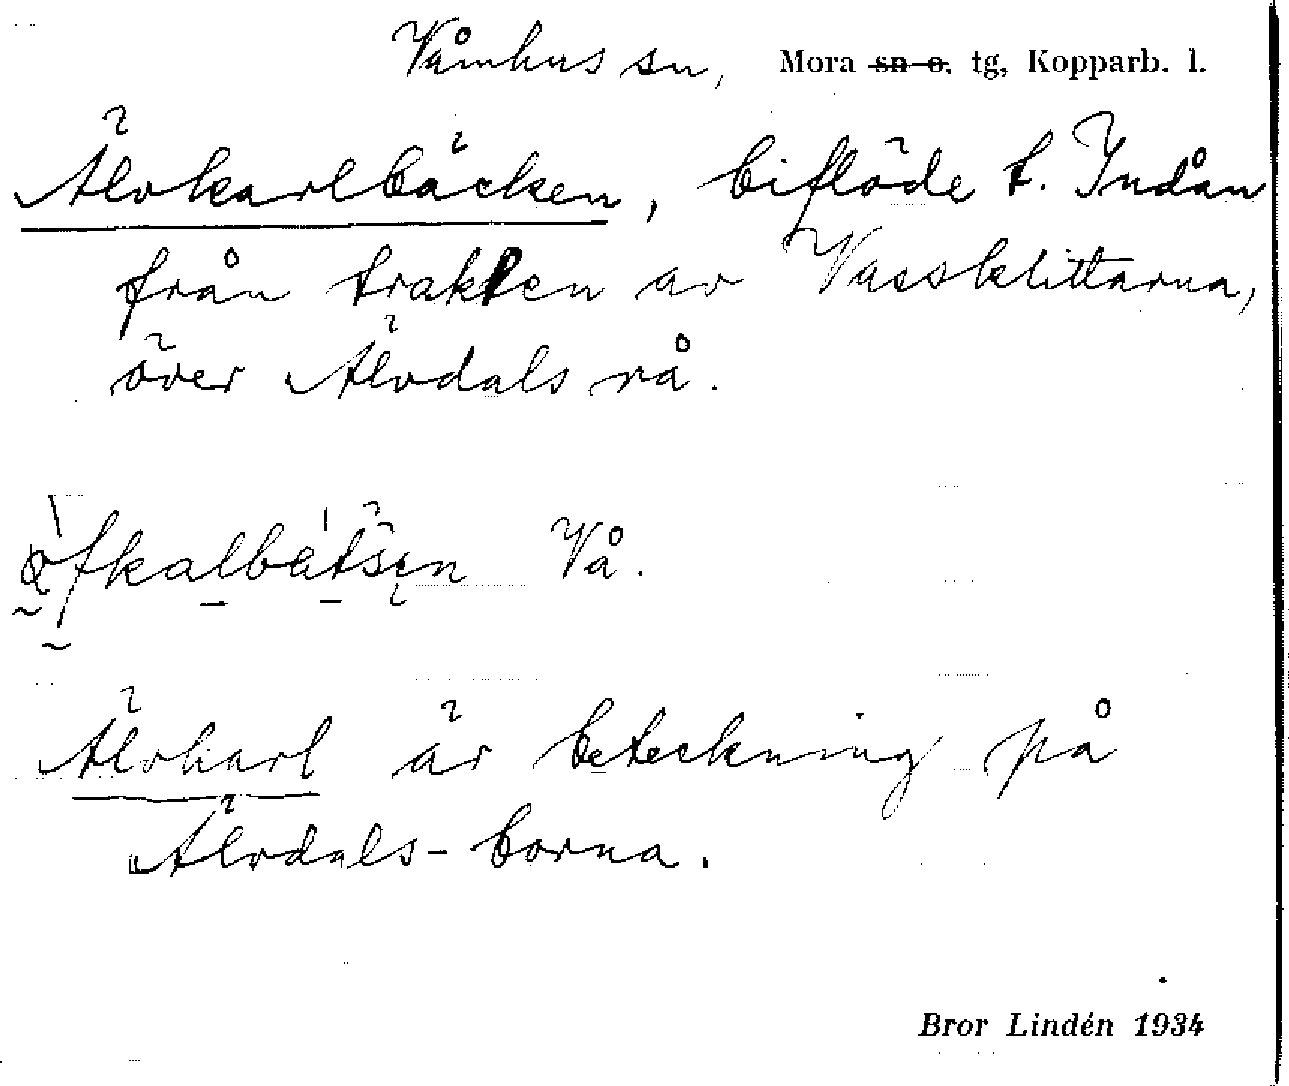 Våmhus sn, Mora sn o. tg, Kopparb. l.
Älvkarlbäcken, biflöde t. Indån
från trakten av Vassklittarna,
över Älvdals rå.
Vå.
Älvkarl är beteckning på
Älvdals-borna.
Bror Lindén 1934